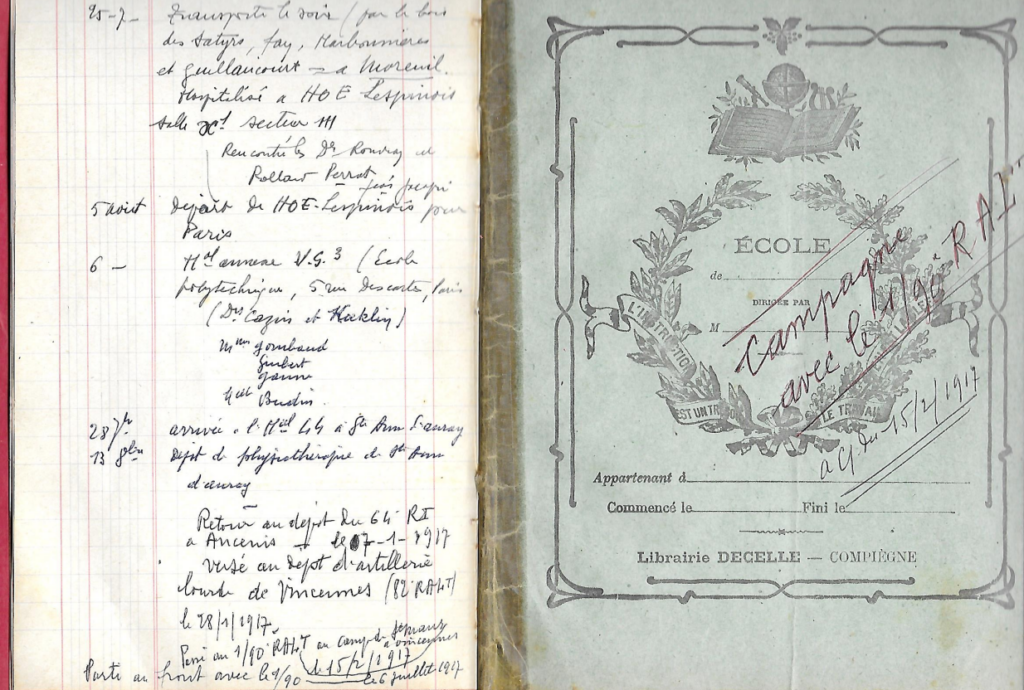 25-7 Transporté le soir (par le bois
des Satyrs, fay, Harbonnières
et Guillaucourt — a Moreuil.
Hospitalisé a HOE Lespinois
Salle section III
Rencontré les Drs Rouvray et
Rollard Perrot
5 aout départ de HOE-Lespinois pour
Paris
6 — Hal annexe V.G.3 (Ecole
polytechnique, 5 rue Descartes, Paris
(Drs Cazin et Kœklin)
Mmes Gombaud
Guibert
Mell Budin.
28 7bre arrivée a l'Hal 44 a Ste Ann d'auray
13 Dépôt de physiothérapie de Ste Ann
d'auray
Retour au dépôt du 64 RI
a Ancenis — le 07-1-1917
versé au depot d'artillerie
lourde de Vincennes (82 RALT)
le 28/1/1917.
Passé au 1/90 RALT au camp de St Maur
a vincennes
le 15/2/1917
Parti au front avec le 1/90 le 6 juillet 1917
ÉCOLE
de
DIRIGÉE PAR
M
L'INSTRUCTION
EST UN TR
LE TRAVAIL
Campagne
avec le 1/90e RAL
a cj du 15/2/1917
Appartenant à
Commencé le Fini le
Librairie DECELLE — COMPIÈGNE